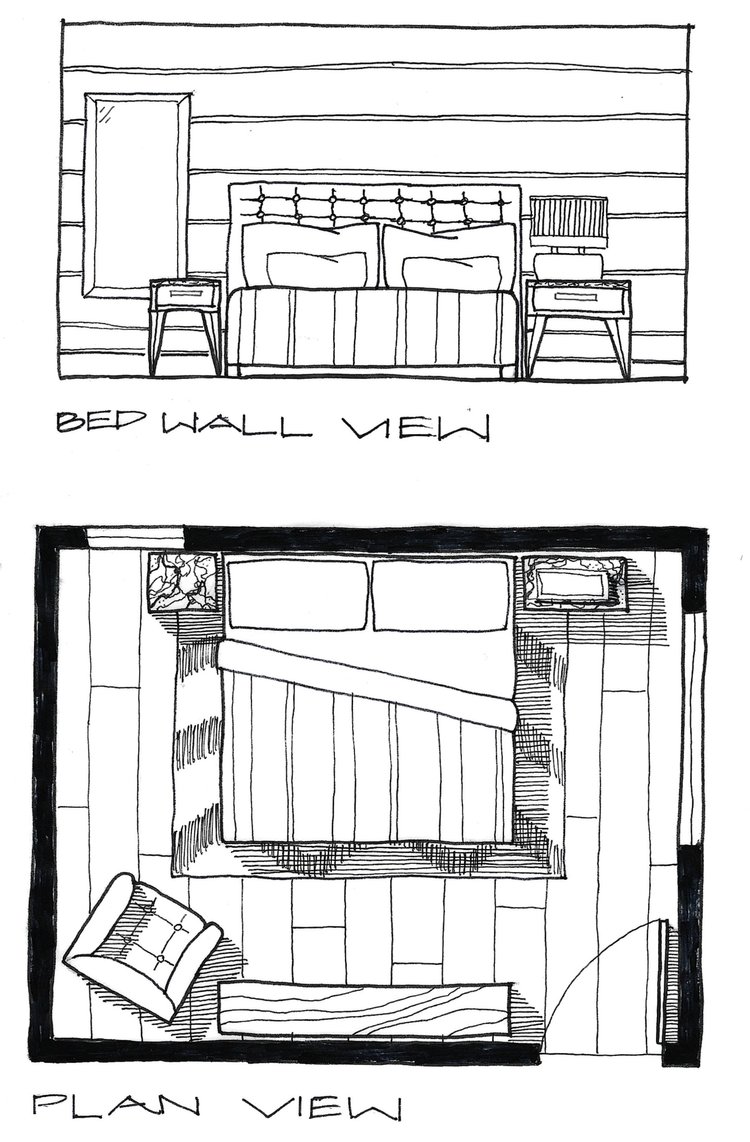 BED WALL VIEW
PLAN VIEW